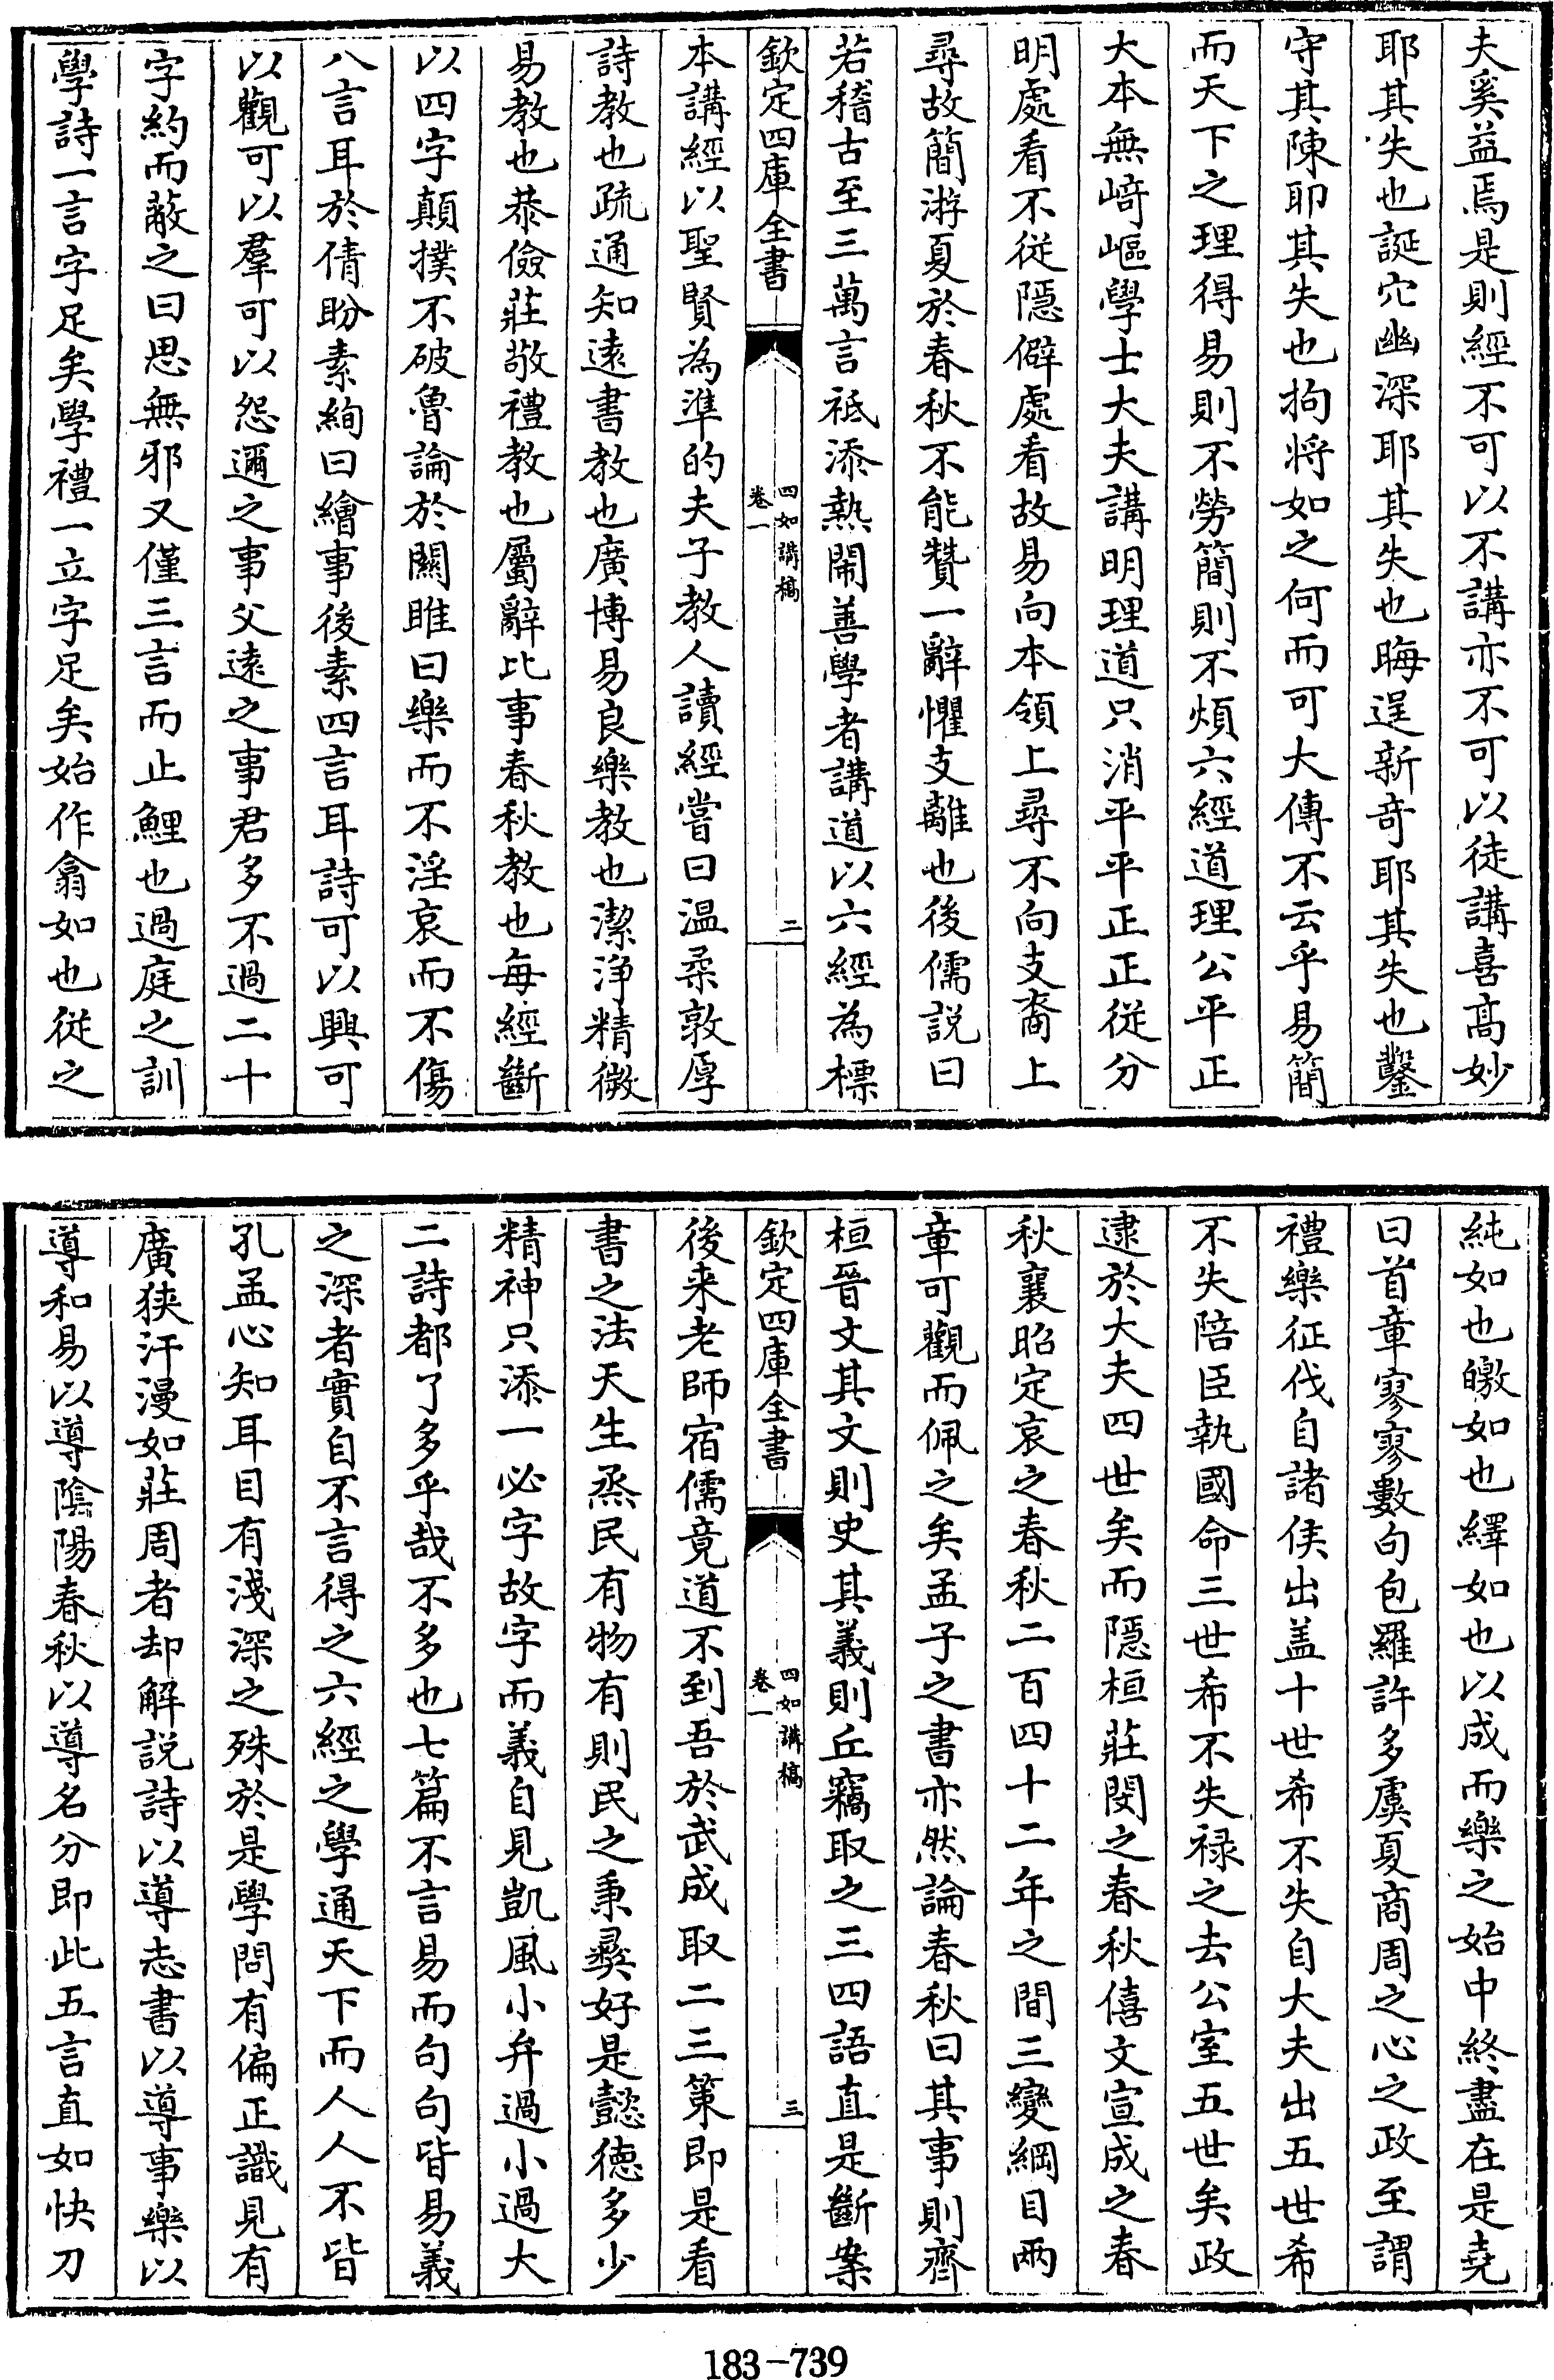 夫奚益焉是則經不可以不講亦不可以徒講喜高妙
耶其失也誕穴幽深耶其失也晦逞新奇耶其失也鑿
守其陳耶其失也拘將如之何而可大傳不云乎易簡
而天下之理得易則不勞簡則不煩六經道理公平正
大本無﨑嶇學士大夫講明理道只消平平正正從分
明處看不從隠僻處看故易向本領上尋不向支裔上
尋故簡游夏於春秋不能贊一辭懼支離也後儒説曰
若稽古至三萬言祗添熱鬧善學者講道以六經為標
欽定四庫全書
四如講稿
卷一
二
本講經以聖賢為準的夫子教人讀經嘗曰温柔敦厚
詩教也疏通知逺書教也廣博易良樂教也潔浄精微
易教也恭儉莊敬禮教也屬辭比事春秋教也每經斷
以四字顛撲不破魯論於關雎曰樂而不淫哀而不傷
八言耳於倩盼素絢曰繪事後素四言耳詩可以興可
以觀可以羣可以怨邇之事父逺之事君多不過二十
字約而蔽之曰思無邪又僅三言而止鯉也過庭之訓
學詩一言字足矣學禮一立字足矣始作翕如也從之
純如也皦如也繹如也以成而樂之始中終盡在是堯
曰首章寥寥數句包羅許多虞夏商周之心之政至謂
禮樂征伐自諸侯出盖十世希不失自大夫出五世希
不失陪臣執國命三世希不失禄之去公室五世矣政
逮於大夫四世矣而隠桓莊閔之春秋僖文宣成之春
秋襄昭定哀之春秋二百四十二年之間三變綱目兩
章可觀而佩之矣孟子之書亦然論春秋曰其事則齊
桓晉文其文則史其義則丘竊取之三四語直是斷案
欽定四庫全書
四如講稿
卷一
三
後来老師宿儒竟道不到吾於武成取二三策即是看
書之法天生烝民有物有則民之秉彛好是懿徳多少
精神只添一必字故字而義自見凱風小弁過小過大
二詩都了多乎哉不多也七篇不言易而句句皆易義
之深者實自不言得之六經之學通天下而人人不皆
孔孟心知耳目有淺深之殊於是學問有偏正識見有
廣狹汗漫如莊周者却解説詩以導志書以導事樂以
導和易以導隂陽春秋以導名分即此五言直如快刀
183-739